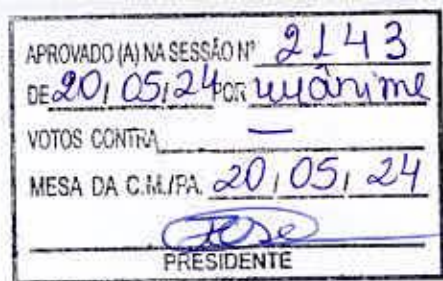 APROVADO (A) NA SESSÃO Nº 2143
DE 20, 05, 24 POR unânime
VOTOS CONTRA —
MESA DA C.M./PA. 20, 05, 24
PRESIDENTE